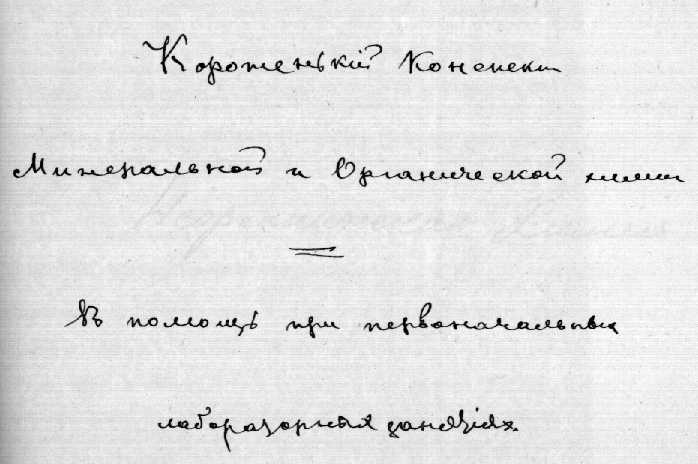 Коротенькій Конспект
Минеральной и Органической химии
Въ помощь при первоначальных
лабораторныхъ занятіяхъ.